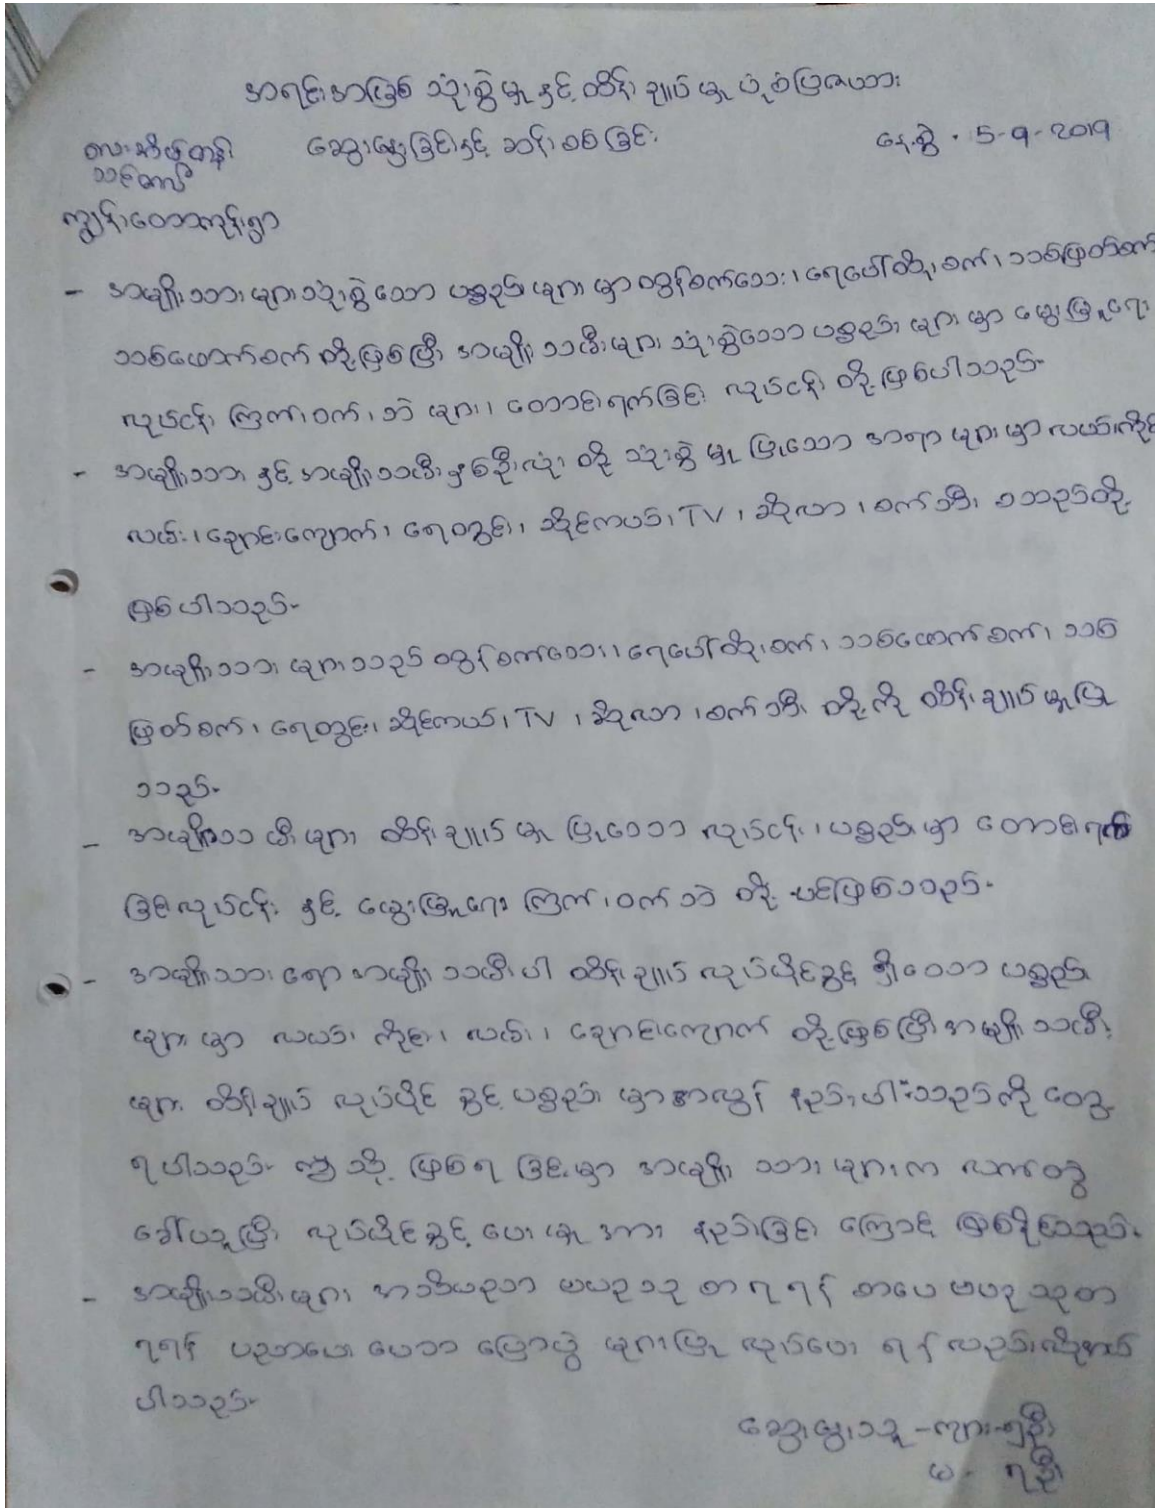 အရင်းအမြစ် သုံးစွဲမှု နှင့် ထိန်းချုပ်မှု ပုံစံပြဇယား
ဆွေးနွေးခြင်းနှင့် ဆန်းစစ်ခြင်း နေ့စွဲ - 5-9-2019
ကျွန်းတောကုန်းရွာ
- အမျိုးသားများသုံးစွဲသော ပစ္စည်းများမှာ ထွန်စက်လေး၊ ရေပေါ်ထိုးစက်၊ သစ်ဖြတ်စက်
သစ်ဖောက်စက် တို့ဖြစ်ပြီး အမျိုးသမီးများ သုံးစွဲသော ပစ္စည်းများမှာ မွေးမြူရေး
လုပ်ငန်း ကြက်၊ ဝက်၊ ဘဲ များ၊ တောင်းရက်ခြင်း လုပ်ငန်း တို့ဖြစ်ပါသည်။
- အမျိုးသား နှင့် အမျိုးသမီး နှစ်ဦးလုံး တို့ သုံးစွဲမှု ပြုသော အရာများမှာ လယ်၊ ကိုင်း
လမ်း၊ ချောင်းကျောက်၊ ရေတွင်း၊ ဆိုင်ကယ်၊ TV ၊ ဆိုလာ ၊ စက်ဘီး စသည်တို့
ဖြစ်ပါသည်။
- အမျိုးသားများသည် ထွန်စက်လေး၊ ရေပေါ်ထိုးစက်၊ သစ်ဖောက်စက်၊ သစ်
ဖြတ်စက်၊ ရေတွင်း၊ ဆိုင်ကယ်၊ TV ၊ ဆိုလာ ၊ စက်ဘီး တို့ကို ထိန်းချုပ်မှုပြု
သည်။
- အမျိုးသမီးများ ထိန်းချုပ်မှု ပြုသော လုပ်ငန်း၊ ပစ္စည်းမှာ တောင်းရက်
ခြင်းလုပ်ငန်း နှင့် မွေးမြူရေး ကြက်၊ ဝက် ဘဲ တို့ ပင်ဖြစ်သည်။
- အမျိုးသားရော အမျိုးသမီးပါ ထိန်းချုပ် လုပ်ပိုင်ခွင့် ရှိသော ပစ္စည်း
များမှာ လယ်၊ ကိုင်း၊ လမ်း၊ ချောင်းကျောက် တို့ဖြစ်ပြီး အမျိုးသမီး
များ ထိန်းချုပ် လုပ်ပိုင်ခွင့် ပစ္စည်းမှာ အလွန် နည်းပါးသည်ကို တွေ့
ရပါသည်။ ဤသို့ ဖြစ်ရခြင်းမှာ အမျိုးသားများက လက်တွဲ
ခေါ်ယူပြီး လုပ်ပိုင်ခွင့် ပေးမှု အား နည်းခြင်း ကြောင့် ဖြစ်နိုင်သည်။
- အမျိုးသမီးများ အသိပညာ ဗဟုသုတ ရရန် စာပေ ဗဟုသုတ
ရရန် ပညာပေး ဟောပြောပွဲ များပြုလုပ်ပေး ရန် လည်းလိုအပ်
ပါသည်။
ဆွေးနွေးသူ - ကျား - ၅ဦး
မ - ၇ဦး